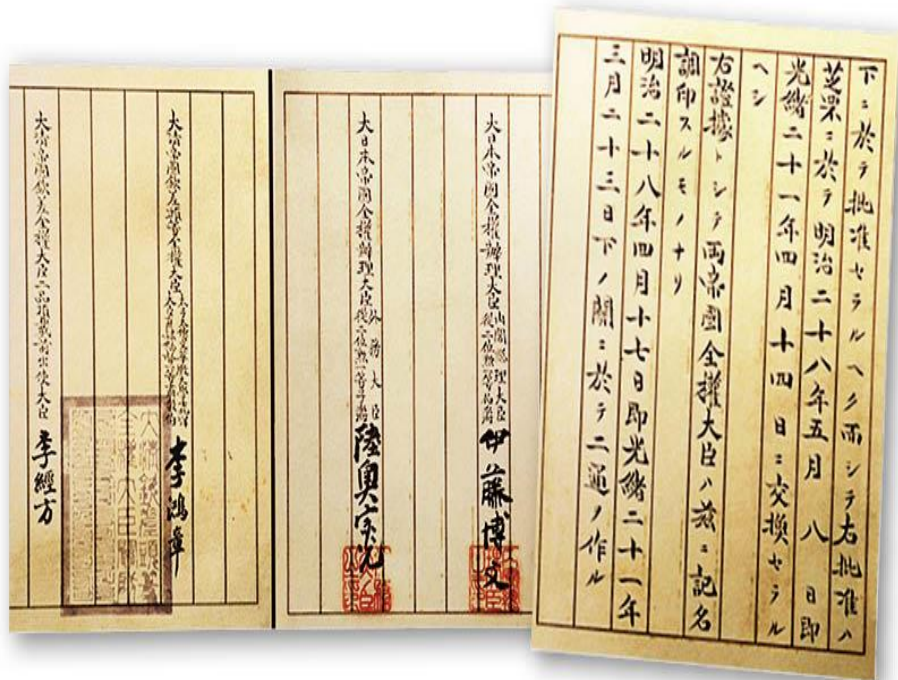 下ニ於テ批准セラルヘク而シテ右批准ハ
芝罘ニ於テ明治二十八年五月八日即
光緒二十一年四月十四日ニ交換セラル
ヘシ
右證據トシテ両帝國全權大臣ハ茲ニ記名
調印スルモノナリ
明治二十八年四月十七日即光緒二十一年
三月二十三日下ノ關ニ於テ二通ノ作ル
大日本帝國全權辦理大臣內閣總理大臣從二位勲一等伯爵伊藤博文
大日本帝國全權辦理大臣外務大臣從二位勲一等子爵陸奥宗光
大清帝國欽差頭等全權大臣李鴻章
大清帝國欽差全權大臣二品頂戴前出使大臣李經方